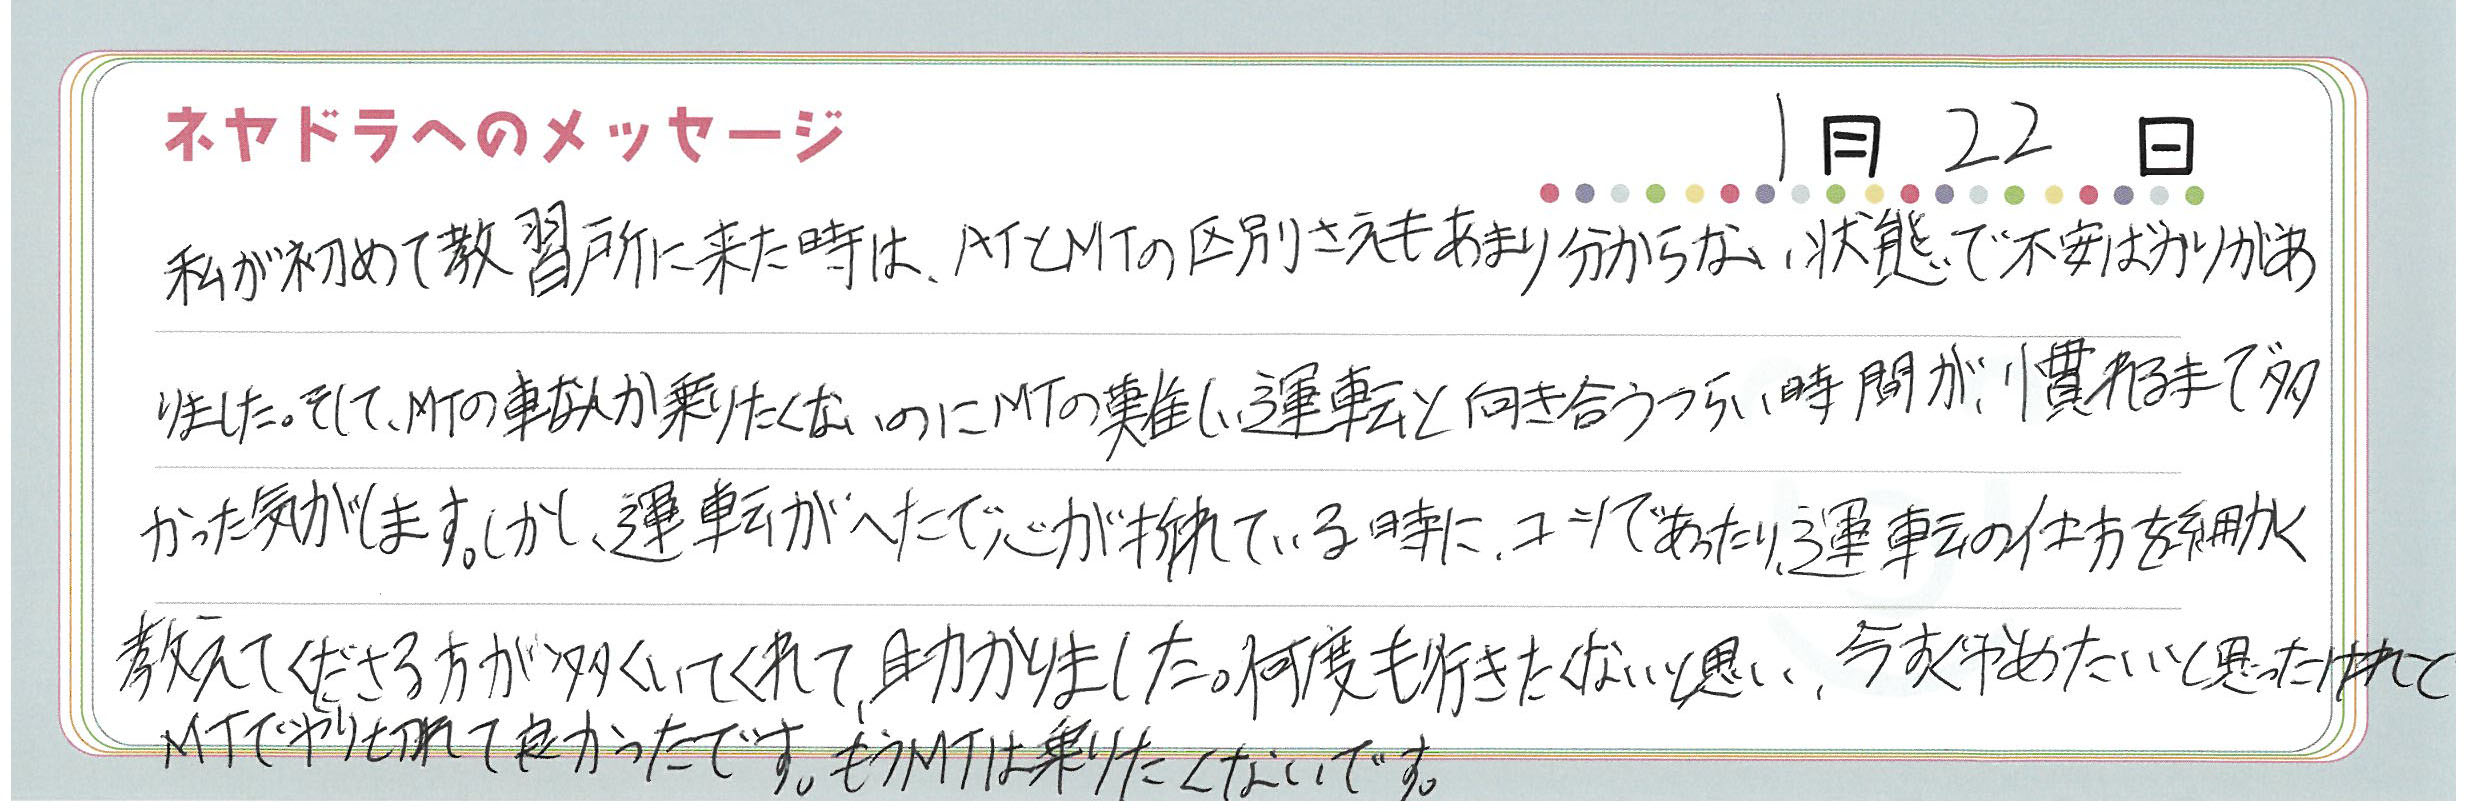 ネヤドラへのメッセージ
1月22日
私が初めて教習所に来た時は、ATとMTの区別さえもあまり分からない状態で不安ばかりがあ
りました。そして、MTの車なんか乗りたくないのにMTの難しい運転と向き合うつらい時間が、慣れるまで多
かった気がします。しかし、運転がへたで心が折れている時に、コツであったり、運転の仕方を細かく
教えてくださる方が多くいてくれて、助かりました。何度も行きたくないと思い、今すぐやめたいと思ったけれど
MTでやり切れて良かったです。もうMTは乗りたくないです。